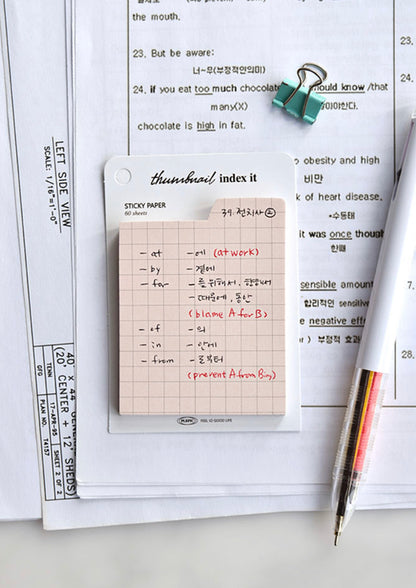 the mouth.
23. But be aware:
너~무(부정적인의미)
24. if you eat too much chocolate
should know /that
many(X)
이야한다.
chocolate is high in fat.
24.
obesity and high
비만
k of heart disease.
•수동태
it was once though
한때
sensible amount
합리적인 sensitive
negative effe
부정적 효과
LEFT SIDE VIEW
SCALE: 1/16"=1'-0"
40' x 44'
(20' CENTER + 12'
SHEDS)
TENN
17-APR-95
SHEET 2 OF 2
PLAN NO.
T4157
thumbnail index it
STICKY PAPER
60 sheets
37. 전치사②
- at - 에 (at work)
- by - 곁에
- for - 를 위해서, 향해서
- 때문에, 동안
(blame A for B)
- of - 의
- in - 안에
- from - 로부터
(prevent A from Bing)
PLEPIC FEEL SO GOOD LIFE